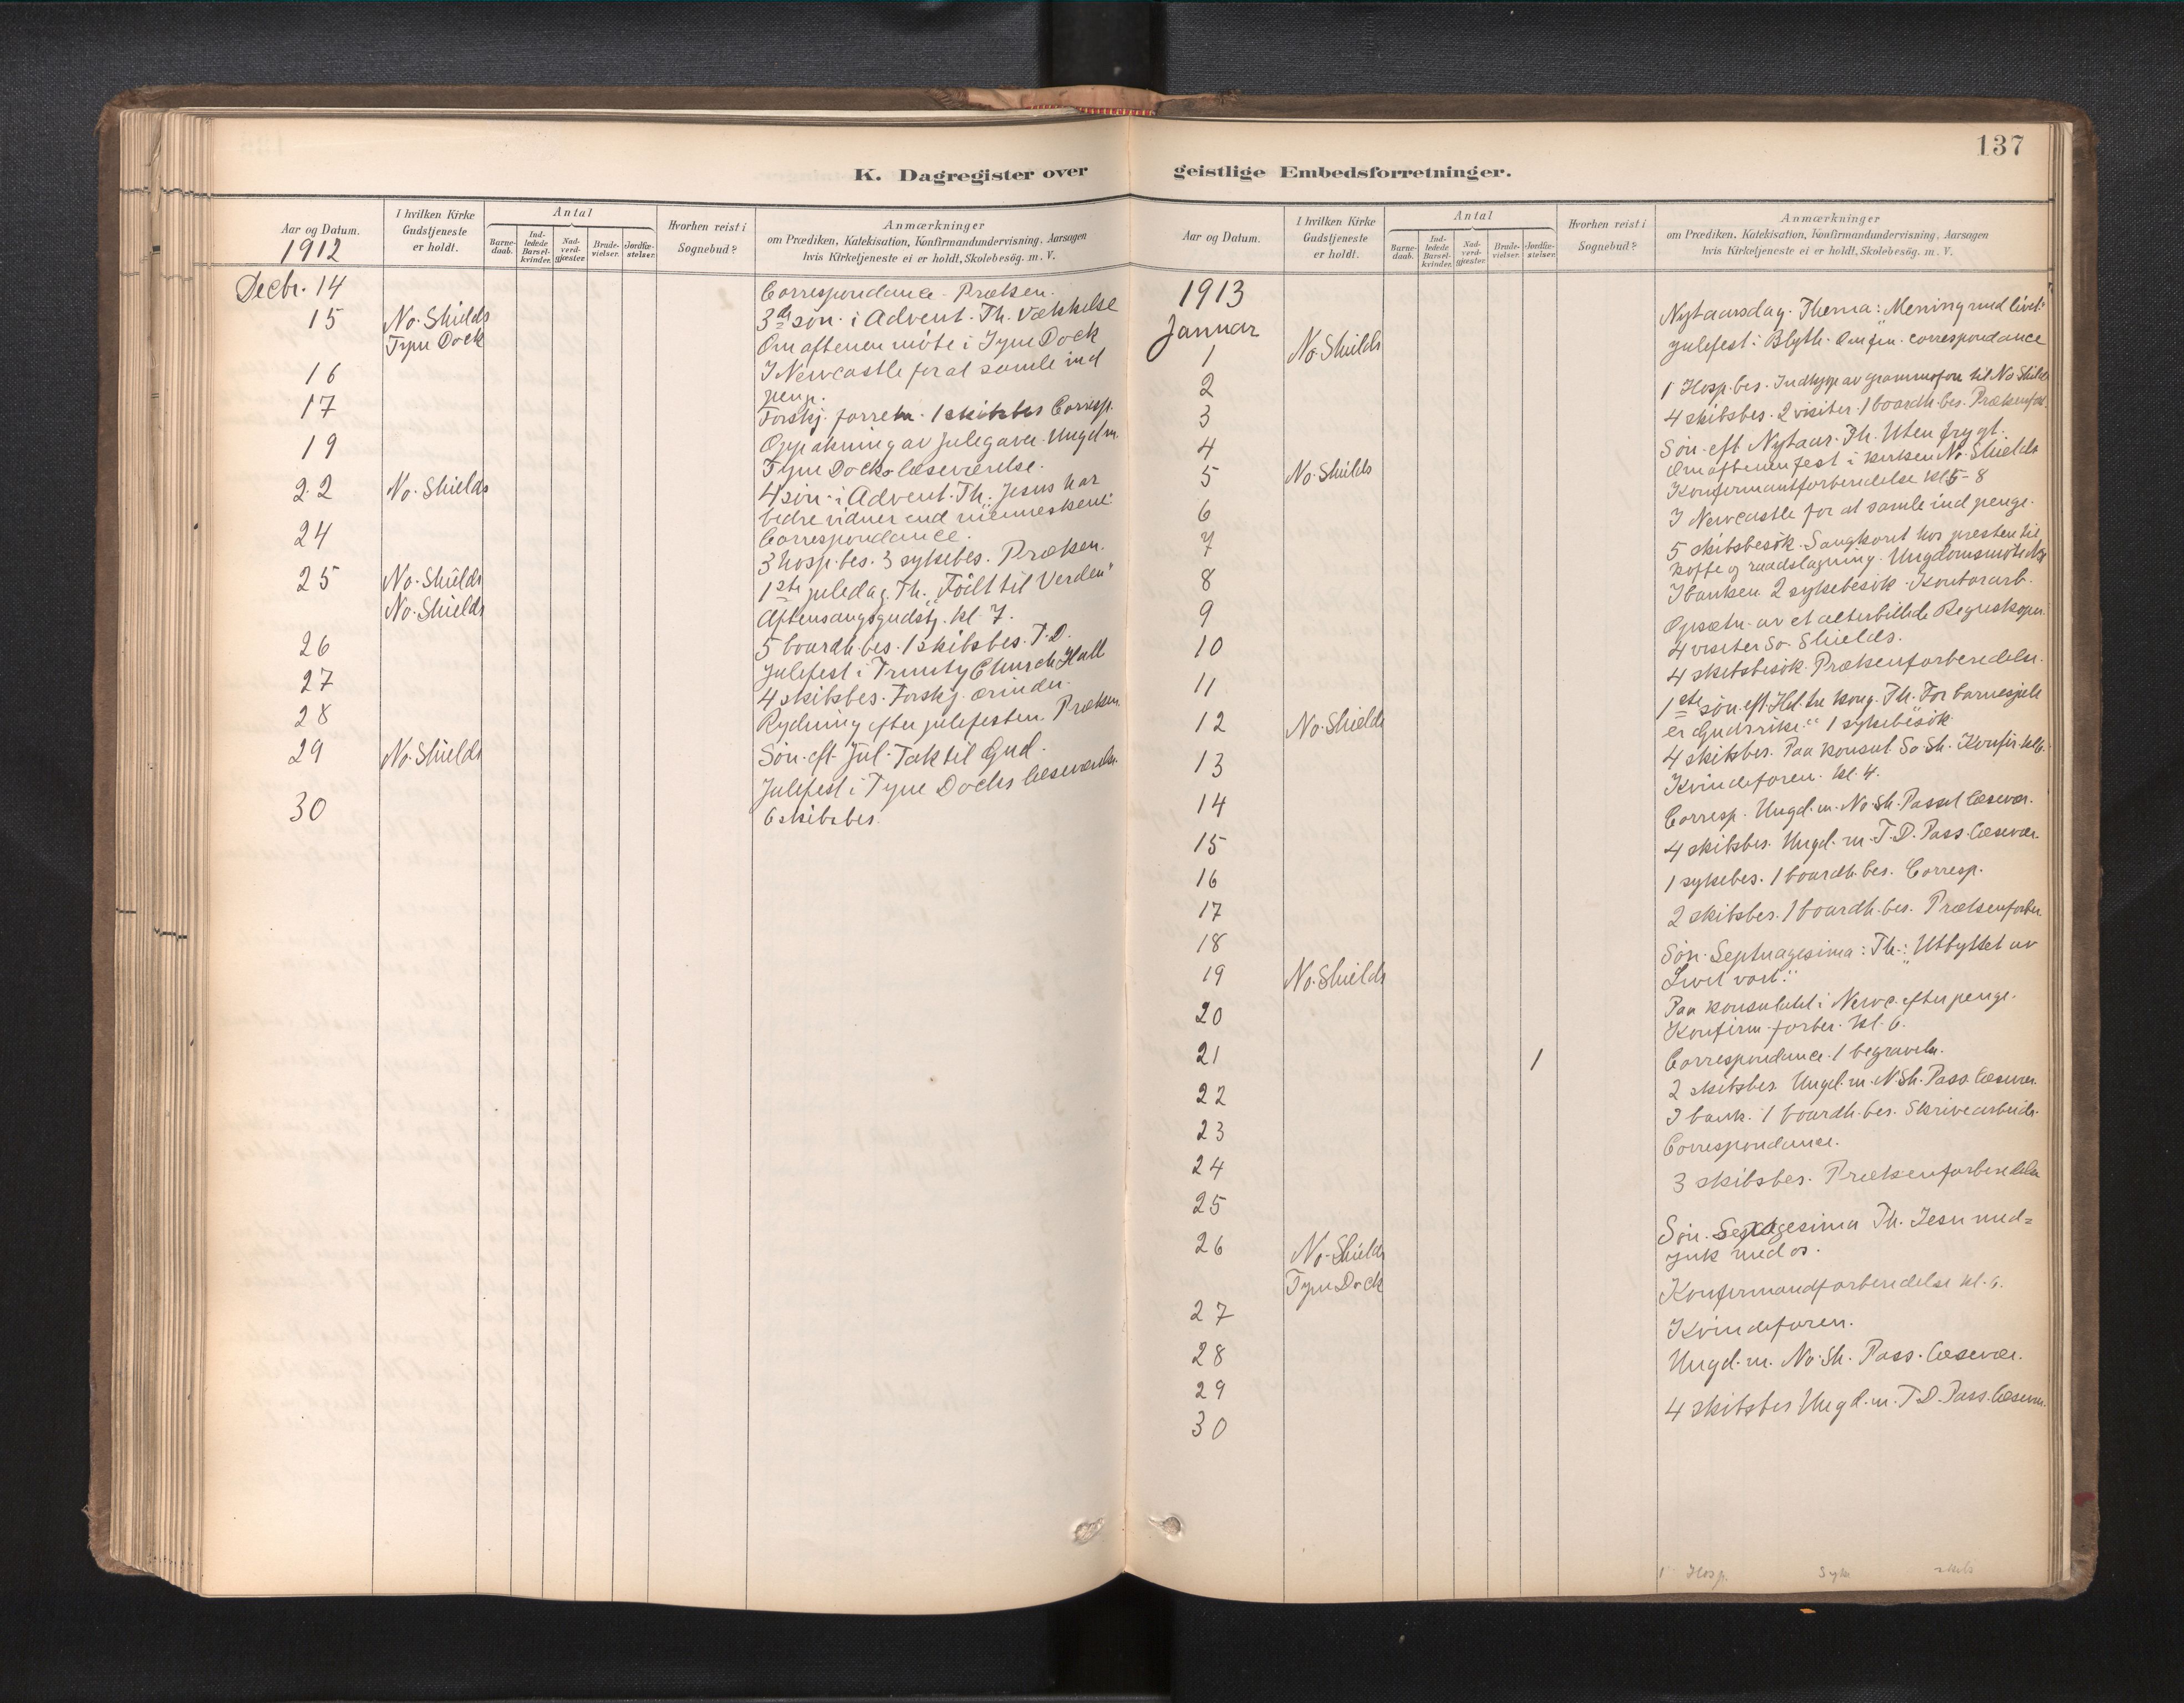 K. Dagregister over
Aar og Datum.
1912
I hvilken Kirke Gudstjeneste er holdt.
Antal
Barne-daab.
Ind-ledede Barsel-kvinder.
Nad-verd-gjæster.
Brude-vielser.
Jordfæ-stelser.
Hvorhen reist i Sognebud?
Anmærkninger
om Prædiken, Katekisation, Konfirmandundervisning, Aarsagen
hvis Kirketjeneste ei er holdt, Skolebesög. m. V.
Decbr. 14 Correspondance. Præken.
15 No. Shields 3die søn. i Advent. Th. Vækkelse
Tyne Dock Om aftenen møte i Tyne Dock
16 I Newcastle for at samle ind
penge.
17 Forskj. forretn. 1 skibsbes Corresp.
19 Oppakning av julegaver. Ungd m.
Tyne Docks læseværelse.
22 No. Shields 4 søn. i Advent. Th. Jesus har
bedre vidner end menneskene"
24 Correspondance.
3 hosp. bes. 3 sykebes. Præken.
25 No. Shields 1ste juledag. Th. „Født til Verden"
No. Shields Aftensangsgudstj. kl. 7.
26 5 boardh. bes. 1 skibsbes. T.D.
Julefest i Trinity Church Hall
27 4 skibsbes. Forskj. ærinder.
28 Rydning efter julefesten. Præken.
29 No. Shields Søn. eft. Jul. Tak til Gud.
Julefest i Tyne Docks læseværelse.
30 6 skibsbes.
137
geistlige Embedsforretninger.
Aar og Datum.
I hvilken Kirke Gudstjeneste er holdt.
Antal
Barne-daab.
Ind-ledede Barsel-kvinder.
Nad-verd-gjæster.
Brude-vielser.
Jordfæ-stelser.
Hvorhen reist i Sognebud?
Anmærkninger
om Prædiken, Katekisation, Konfirmandundervisning, Aarsagen
hvis Kirketjeneste ei er holdt, Skolebesög. m. V.
1913
Januar
1 No. Shields Nytaarsdag. Thema: Mening med livet"
Julefest i Blyth. correspondance
2 1 Hosp. bes. Indkjøp av grammofon til No Shields
3 4 skibsbes. 2 visiter. 1 boardh. bes. Prækenforb.
4
5 No. Shields Søn. eft. Nytaar. Th. Uten frygt.
Om aftenen fest i kirken No. Shields
6 Konfirmantforberedelse kl 5-8
I Newcastle for at samle ind penge.
7 5 skibsbesøk. Sangkoret hos presten til
kaffe og raadslagning. Ungdomsmøte
8 I banken 2 sykebesøk. Kontorarb.
9 Opsætn. av et alterbillede Regnskaper.
4 visiter So. Shields.
10 4 skibsbesøk. Prækenforberedelse.
11
12 No. Shields 1ste søn. eft. Hel. tre kong. Th. For barnesjele
er Gudsrike." 1 sykebesøk
13 4 skibsbes. Paa konsul. So Sh. Konfir. kl 6.
Kvindeforen. kl. 4.
14 Corresp. Ungd. m. No. Sh. Passet læsevær.
15 4 skibsbes. Ungd. m. T.D. Pass. læsevær.
16 1 sykebes. 1 boardh. bes. Corresp.
17 2 skibsbes. 1 boardh. bes. Prækenforber.
18
19 No. Shields Søn. Septuagesima: Th.: „Utbyttet av
Livet vort."
20 Paa konsulatet i Newc. efter penge.
Konfirm. forber. kl. 6.
21 1 Correspondance. 1 begravelse.
2 skibsbes. Ungd. m. N. Sh. Pass. læsevær.
22 I bank. 1 boardh. bes. Skrivearbeide.
23 Correspondance.
24 3 skibsbes. Prækenforberedelse
25
26 No. Shields Søn. Sexagesima Th. Jesu med=
Tyne Dock ynk med os.
27 Konfirmandforberedelse kl. 6.
Kvindeforen.
28 Ungd. m. No. Sh. Pass. læsevær.
29 4 skibsbes Ungd. m. T.D. Pass. læsevær.
30
1 Hosp. Syke skibs